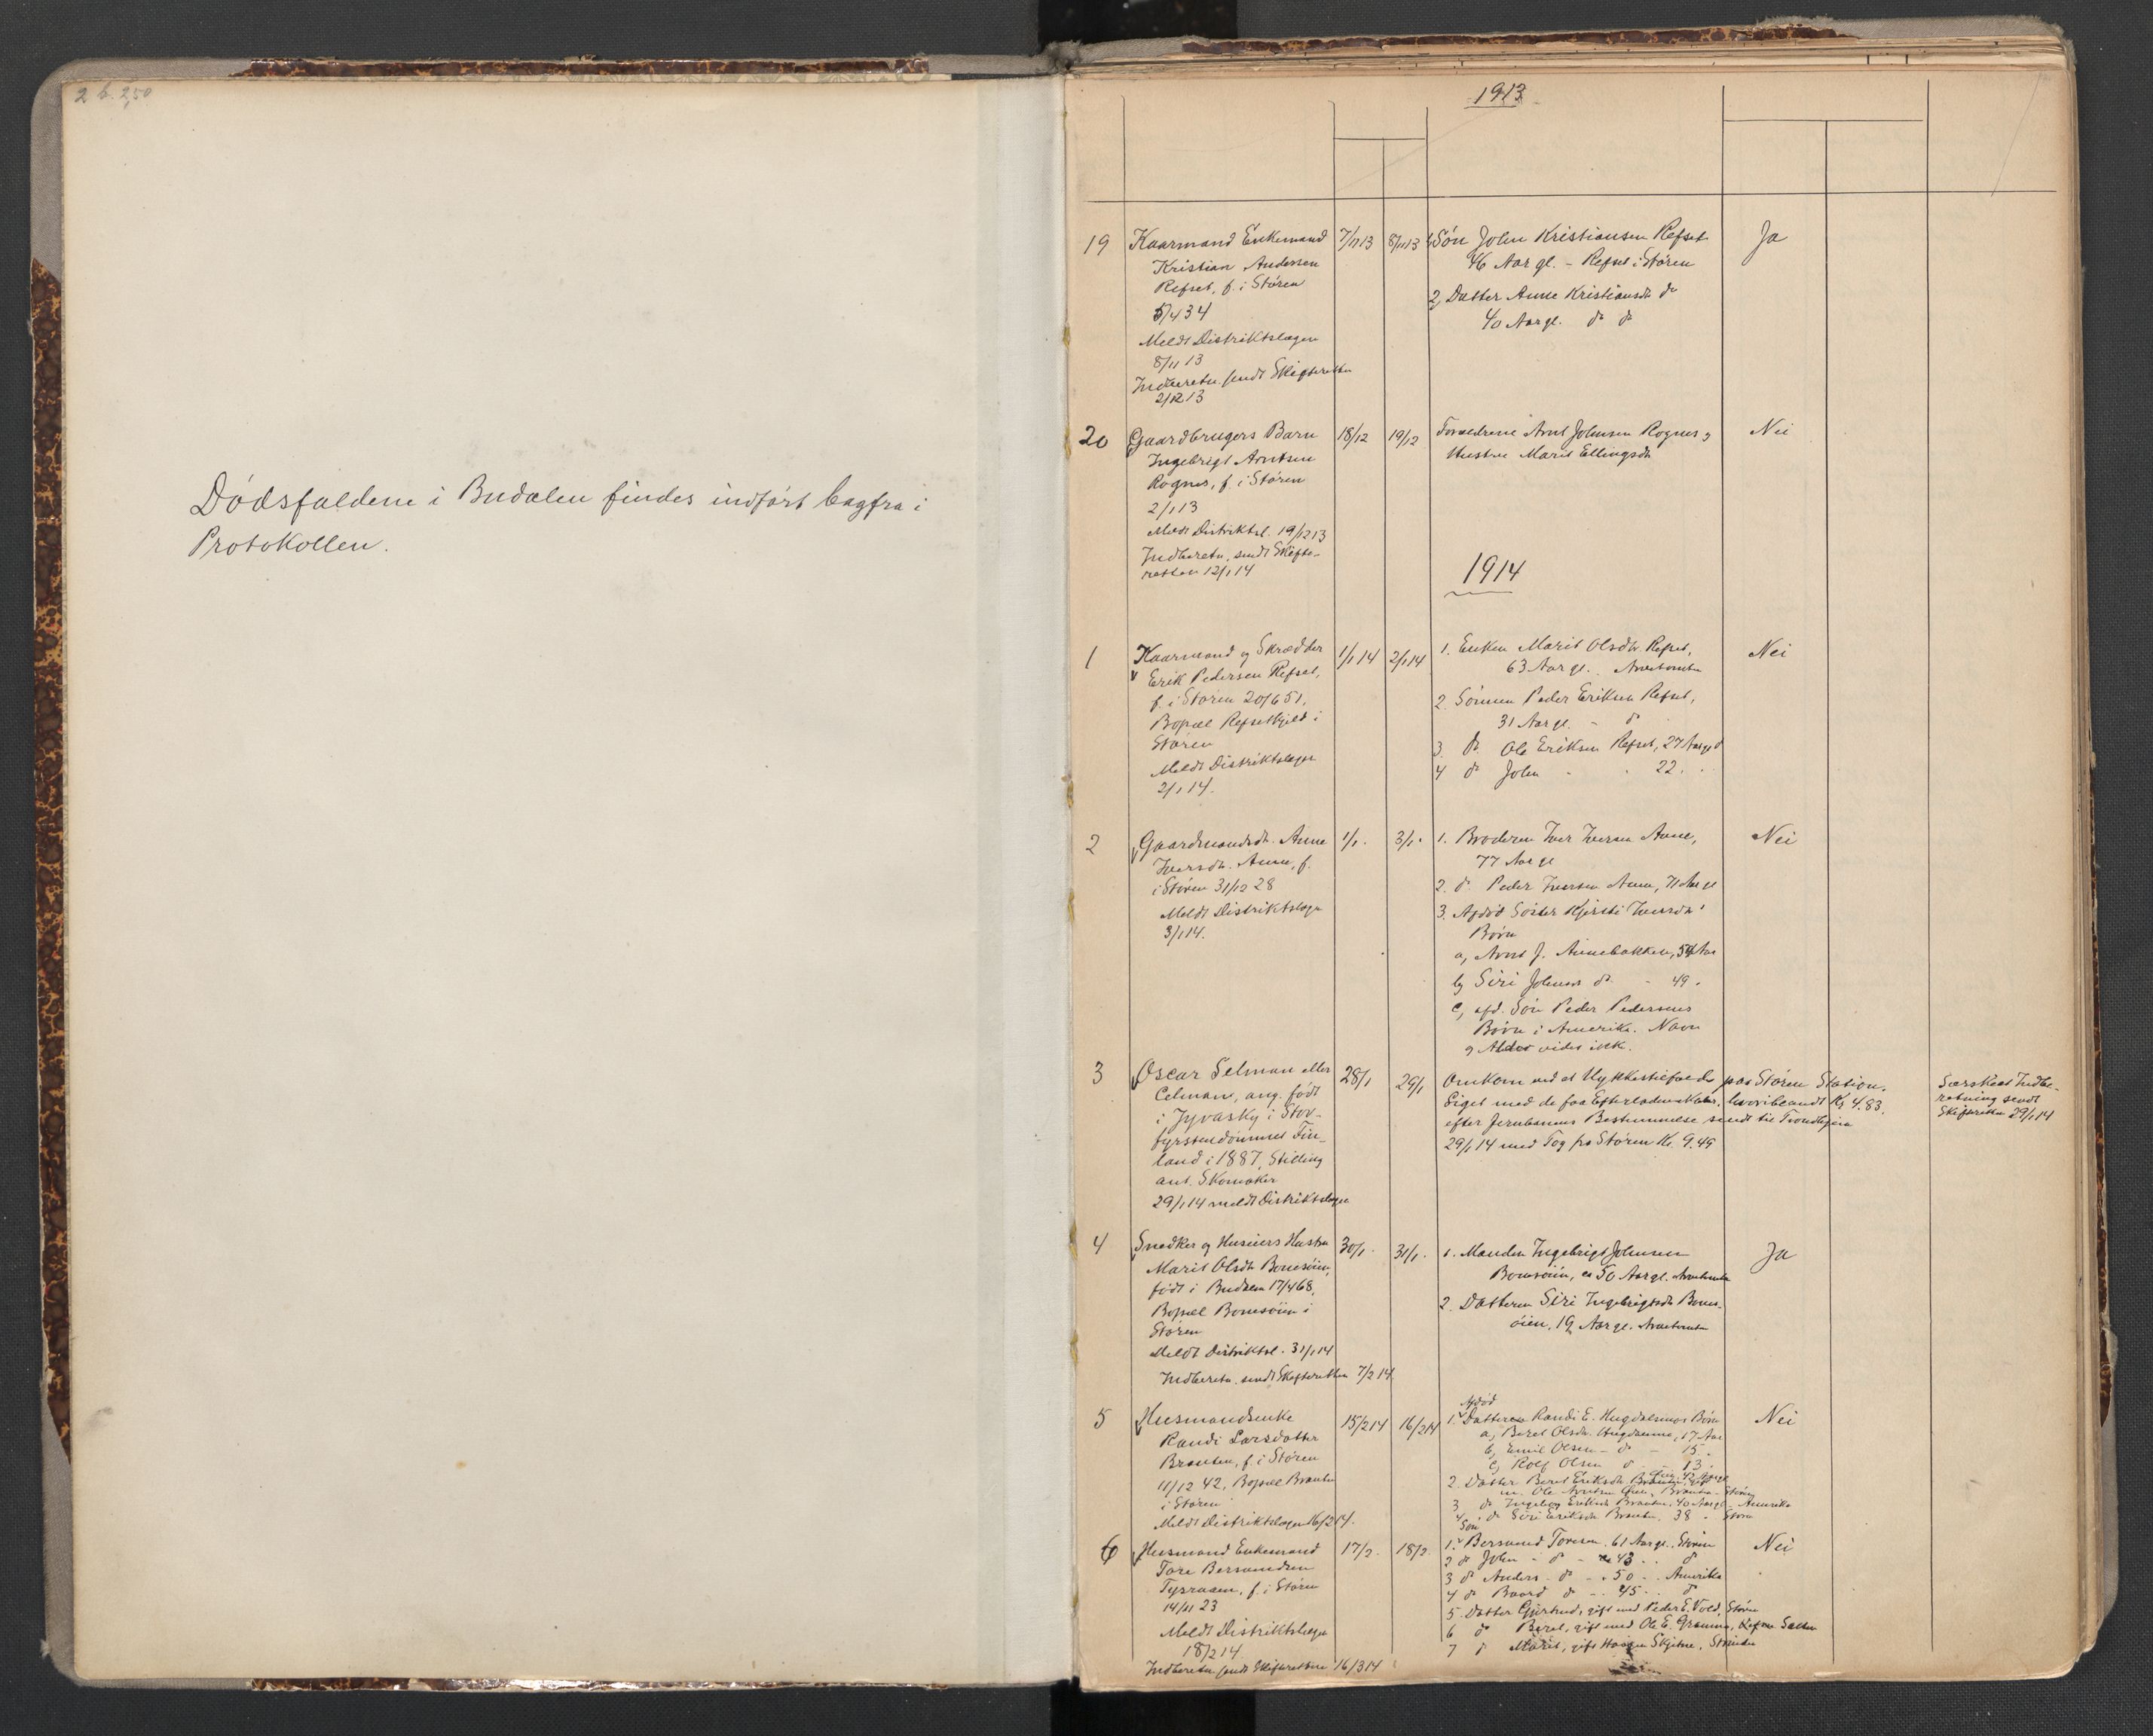 2 b. 2,50
Dødsfaldene i Budalen findes indført bagfra i
Protokollen.
1913
19 Kaarmand Enkemand 7/11 13 8/11 13 1, Søn John Kristiansen Refset Ja
Kristian Andersen 46 Aar gl. - Refset i Støren
Refset, f. i Støren 2, Datter Anne Kristiansdtr do
5/4 34 40 Aar gl. do do
Meldt Distriktslægen
8/11 13
Indberetn. sendt Skifteretten
2/12 13
20 Gaardbrugers Barn 18/12 19/12 Forældrene Arnt Johnsen Rognes og Nei
Ingebrigt Arntsen Hustru Marit Ellingsdtr
Rognes, f. i Støren
2/1 13
Meldt Distriktsl. 19/12 13
Indberetn. sendt Skifte-
retten 12/1 14
1914
1 Kaarmand og Skrædder 1/1 14 2/1 14 1. Enken Marit Olsdtr. Refset, Nei
Erik Pedersen Refset, 63 Aar gl.
f. i Støren 20/6 51, 2. Sønnen Peder Eriksen Refset,
Bopæl Refsethjeld i 31 Aar gl. - do
Støren 3. do Ole Eriksen Refset, 27 Aar gl do
Meldt Distriktslægen 4 do John - - 22. -
2/1 14.
2 Gaardmandsdtr. Anne 1/1. 3/1. 1. Broderen Iver Iversen Aune, Nei
Iversdtr. Aune, f. 77 Aar gl
i Støren 31/12 28 2. do Peder Iversen Aune, 71 Aar gl
Meldt Distriktslægen 3. Afdød Søster Kjersti Iversdtr'
3/1 14. Børn
a, Arnt J. Aunebakken, 54 Aar
b, Siri Johnsen do - 49.
c, afd. Søn Peder Pedersens
Børn i Amerika. Navn
og Alder vides ikke.
3 Oscar Selman eller 28/1 29/1 Omkom ved et Ulykkestilfælde paa Støren Station. Særskilt Indbe-
Celman, ang. født Liget med de faa Efterladenskaber, hvoriblandt Kr 4.83, retning sendt
i Jyvasky i Stor- efter Jernbanens Bestemmelse sendt til Trondhjem Skifteretten 29/1 14
fyrstendømmet Fin- 29/1 14 med Tog fra Støren Kl. 9.49
land i 1887, Stilling
ant. Skomaker
29/1 14 meldt Distriktslægen
4 Snedker og Husiers Hustru 30/1. 31/1. 1. Manden Ingebrigt Johnsen Ja
Marit Olsdtr Bonesøien, Bonesøien, ca 50 Aar gl.
født i Budalen 17/4 68, 2. Datteren Siri Ingebrigtsdtr Bones-
Bopæl Bonesøien i øien, 19 Aar gl.
Støren
Meldt Distriktsl. 31/1 14
Indberetn. sendt Skifteretten 7/2 14
5 Husmandsenke 15/2 14 16/2 14 1. Afdød Datteren Randi E. Hugdalsmos Børn Nei
Randi Larsdatter a, Beret Olsdtr. Hugdalsmo, 17 Aar
Brauten, f. i Støren b, Emil Olsen - do - 15.
11/12 42, Bopæl Brauten c, Rolf Olsen do - 13.
i Støren 2. Datter Beret Eriksdtr Brauten, gift
Meldt Distriktslægen 16/2 14. m. Ole Arntsen Brauten - Støren
3 do Ingebor Eriksdtr Brauten, 40 Aar gl - Amerika
4 do Siri Eriksdtr Brauten, 38 - Støren
6 Husmand Enkemand 17/2. 18/2. 1. Søn Bersvend Toresen, 61 Aar gl. Støren Nei
Tore Bersvendsen 2 do John - do - 43 - do
f. i Støren 3 do Anders - do - 50 - Amerika
14/11 23 4 do Baard do - 45 - do
Meldt Distriktslægen 5. Datter Gjertrud, gift med Peder E. Vold, Støren
18/2 14. 6 do Beret, gift med Ole E.
Indberetn sendt Skifteretten 16/3 14 7 do Marit, gift Haagen Skjetne,